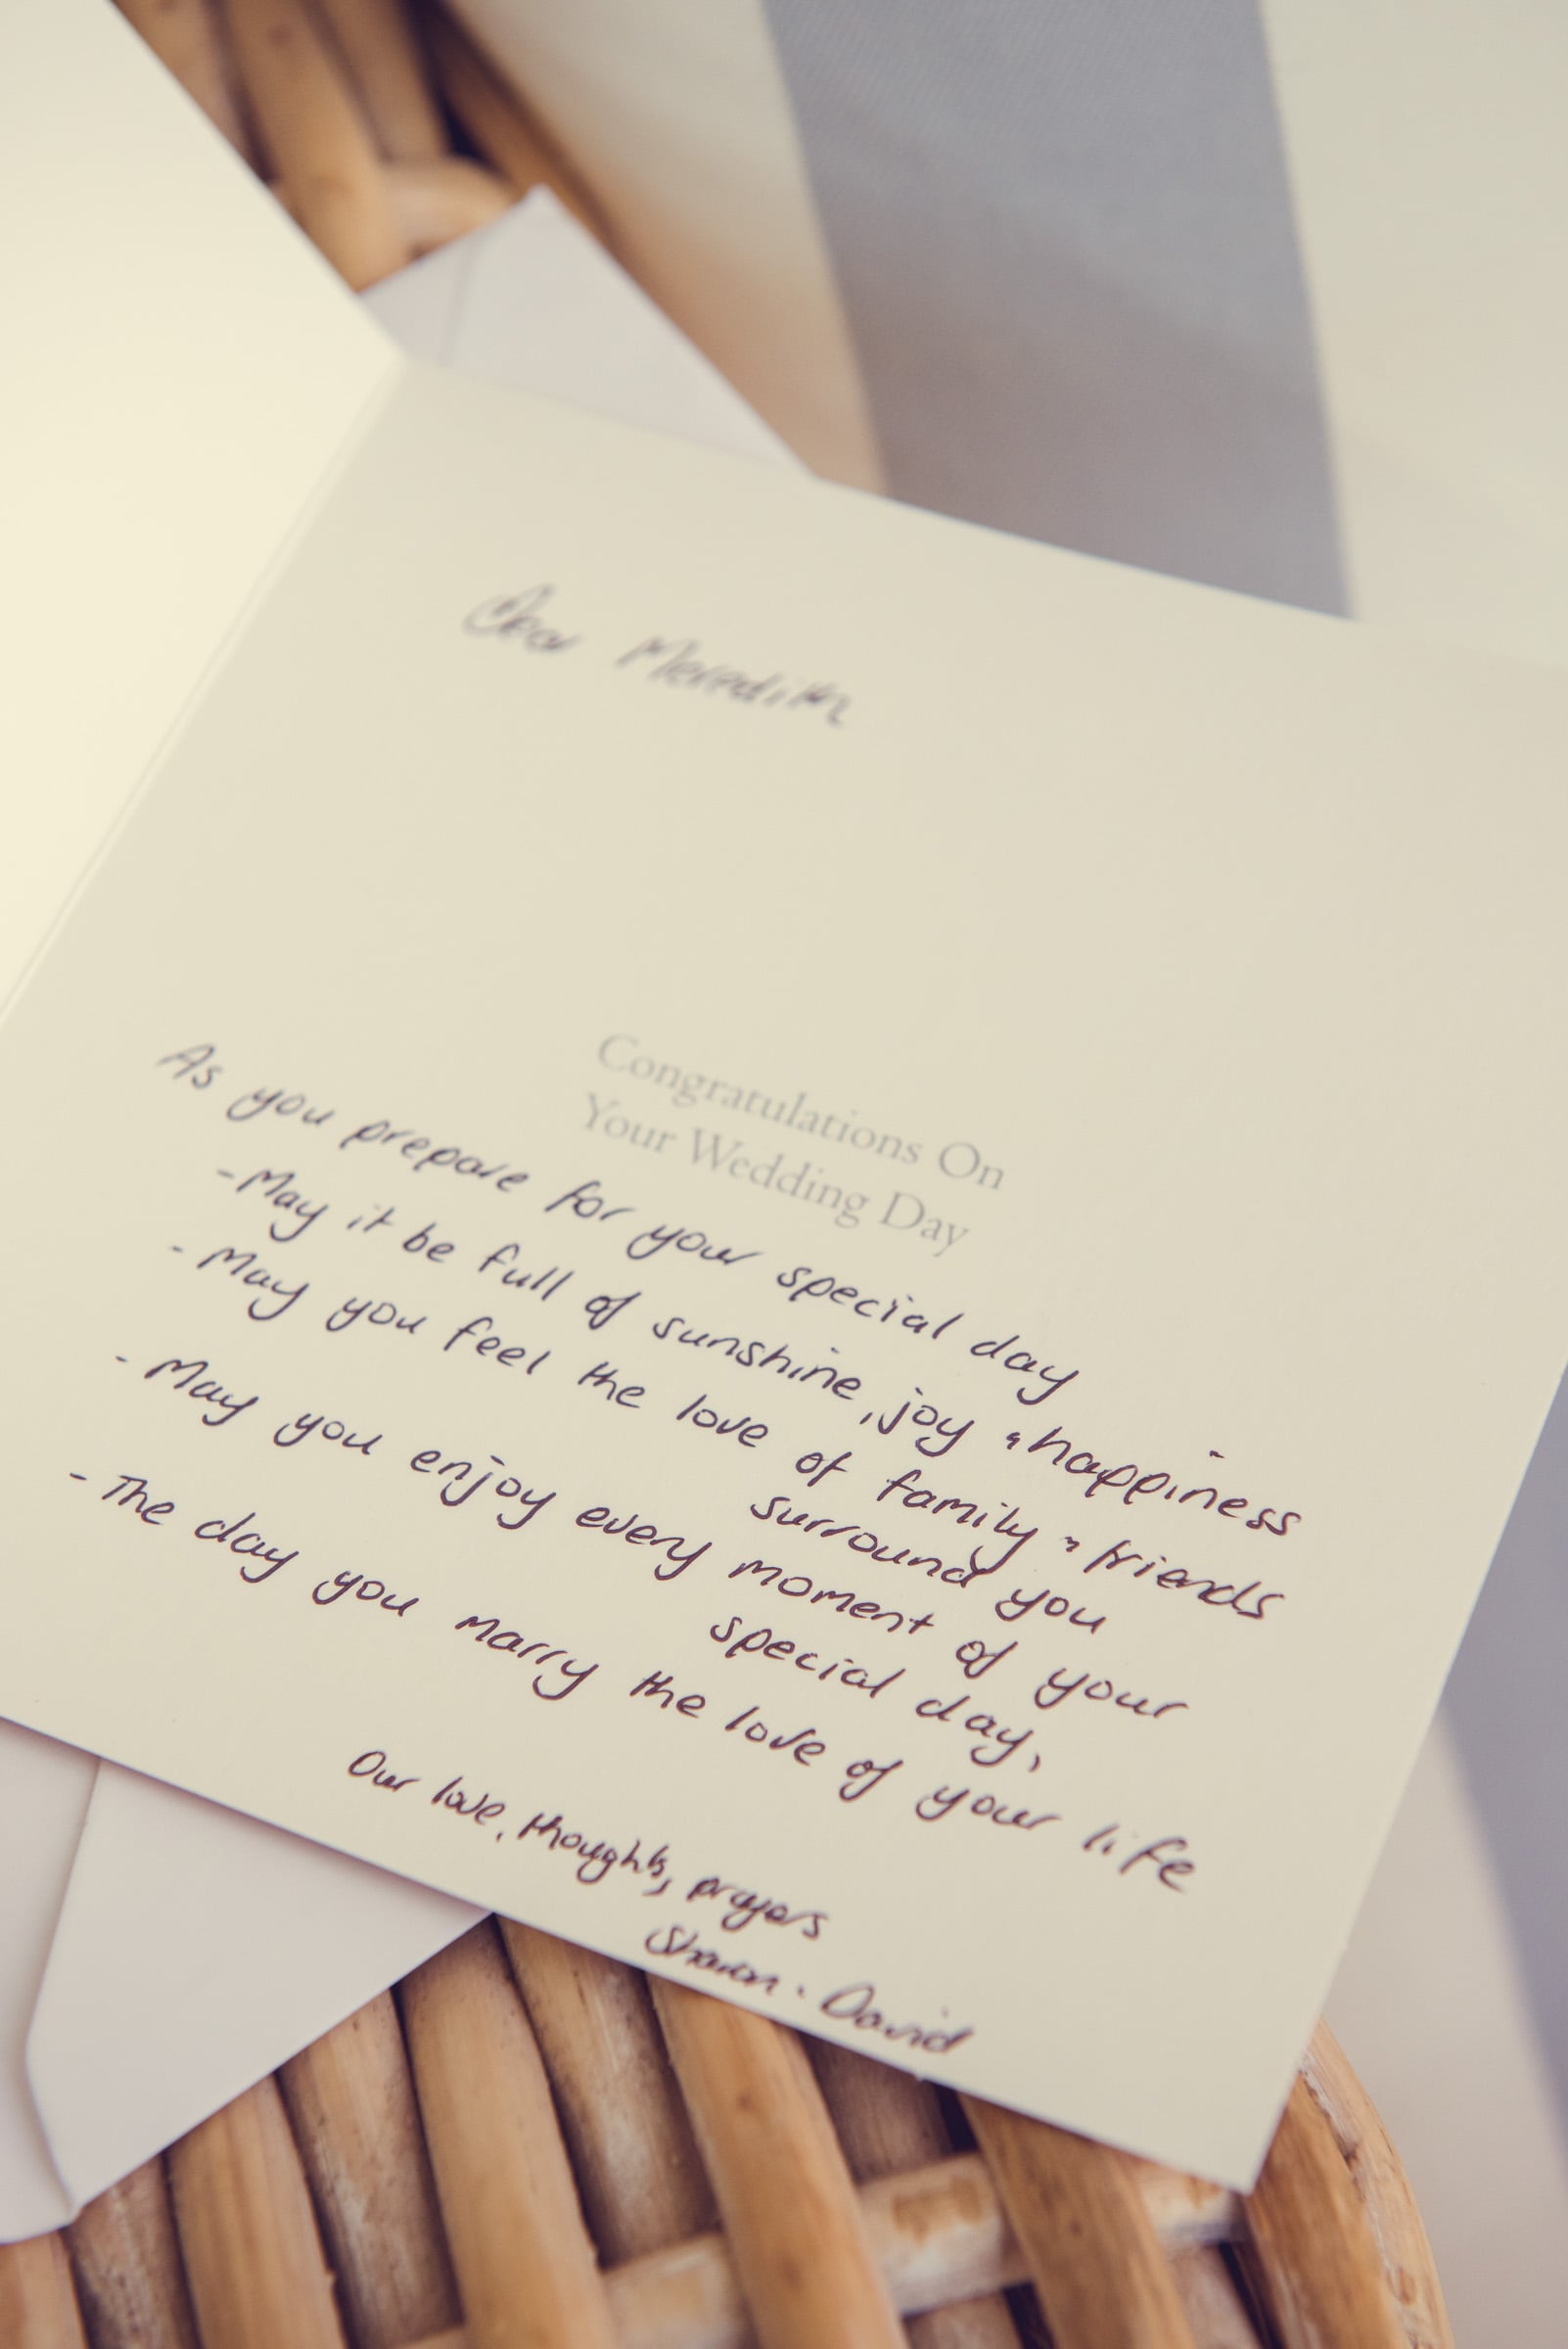 Dear Meredith
Congratulations On
Your Wedding Day
As you prepare for your special day
- May it be full of sunshine, joy & happiness
- May you feel the love of family & friends
surround you
- May you enjoy every moment of your
special day,
- The day you marry the love of your life
Our love, thoughts, prayers
Sharon & David